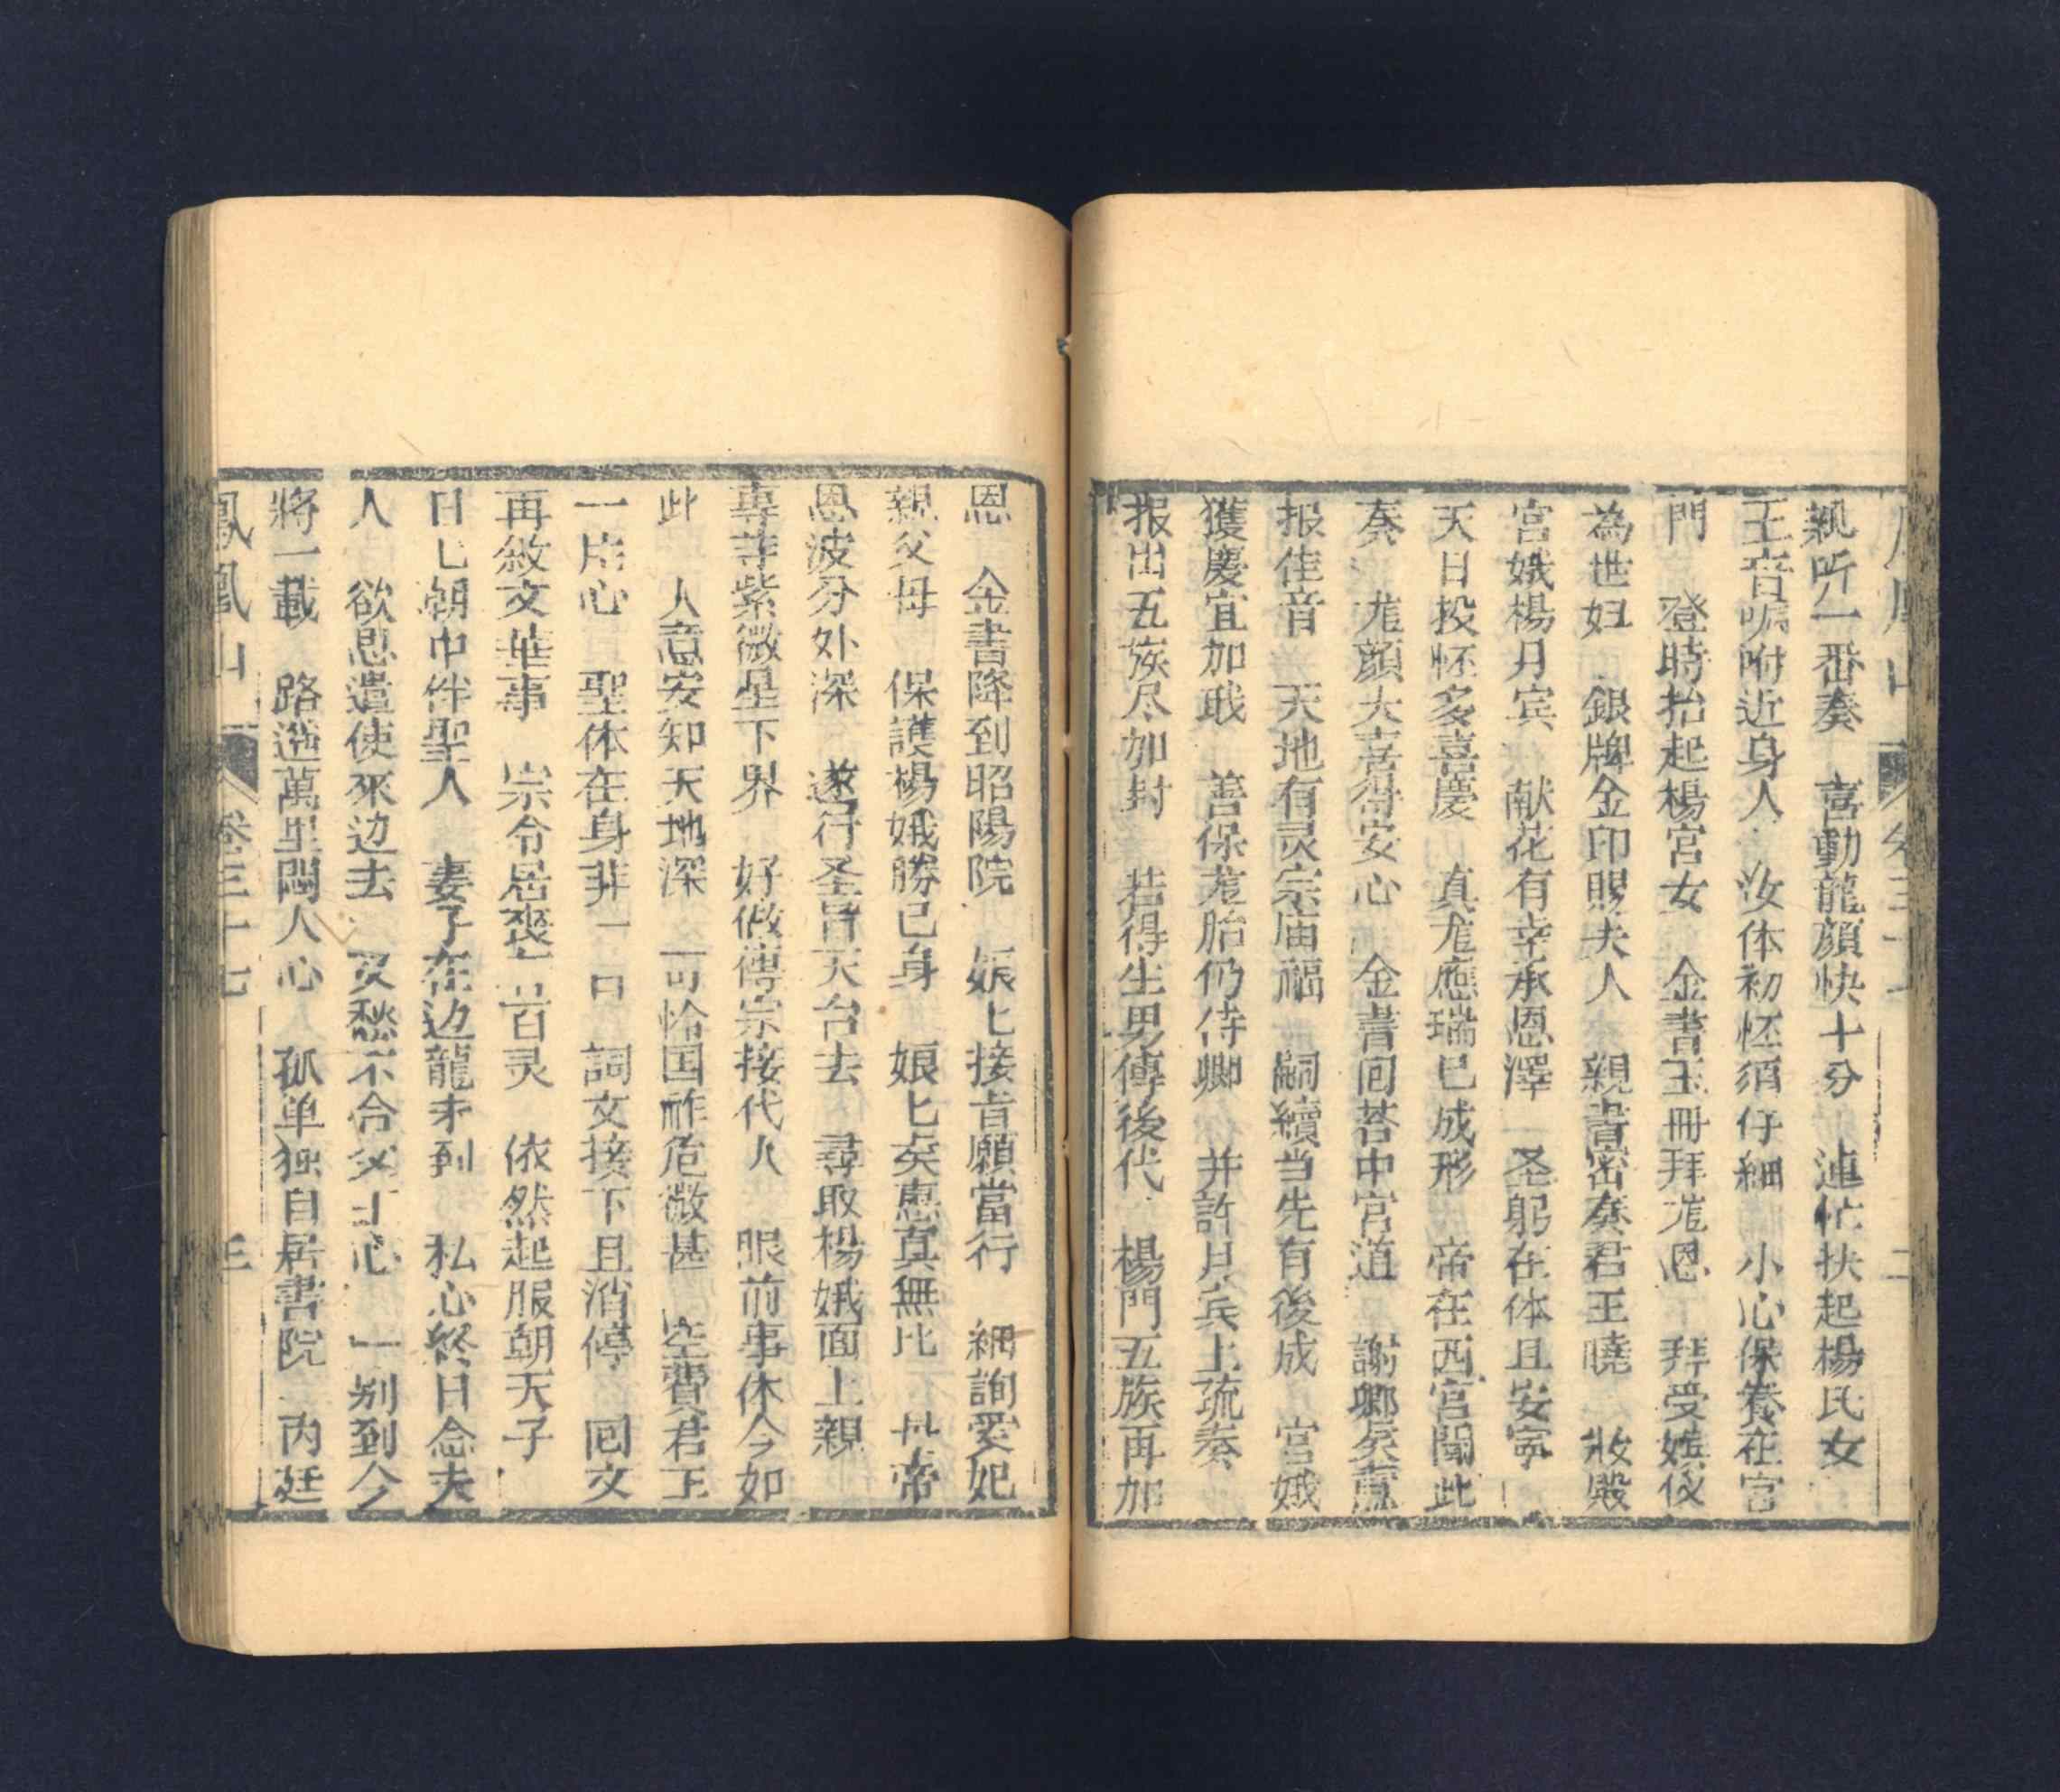 親听一番奏　喜動龍顔快十分　連忙扶起楊氏女
王音嘱咐近身人　汝体初怀須仔細　小心保養在宮
門　登時抬起楊宮女　金書玉冊拜龙恩　拜受嫔仪
為世妇　銀牌金印賜夫人　親書密奏君王曉　妝殿
宮娥楊月宾　献花有幸承恩澤　圣躬在体且安寧
天日投怀多喜慶　真龙應瑞已成形　帝在西宮聞此
奏　龙顔大喜得安心　金書回荅中宮道　謝卿矣蕙
报佳音　天地有灵宗庙福　嗣續当先有後成　宮娥
獲慶宜加戢　善保龙胎仍侍卿　并許月兵上疏奏
报出五族尽加封　若得生男傳後代　楊門五族再加
恩　金書降到昭陽院　娘匕接旨願當行　細詢愛妃
親父母　保護楊娥勝己身　娘匕矣惠真無比　帝
恩波分外深　遂行圣旨天台去　尋取楊娥面上親
專等紫微星下界　好做傳宗接代人　眼前事休今如
此　人意安知天地深　可怜国祚危微甚　空費君王
一片心　聖体在身非一日　詞文接下且消停　回文
再敘文華事　宗令居喪百灵　依然起服朝天子
日匕朝中伴聖人　妻子在边龍未到　私心終日念夫
人　欲思遣使來边去　又愁不合父王心　一别到今
將一載　路遥萬里悶人心　孤单独自居書院　内廷
鳳凰山　卷三十七　三